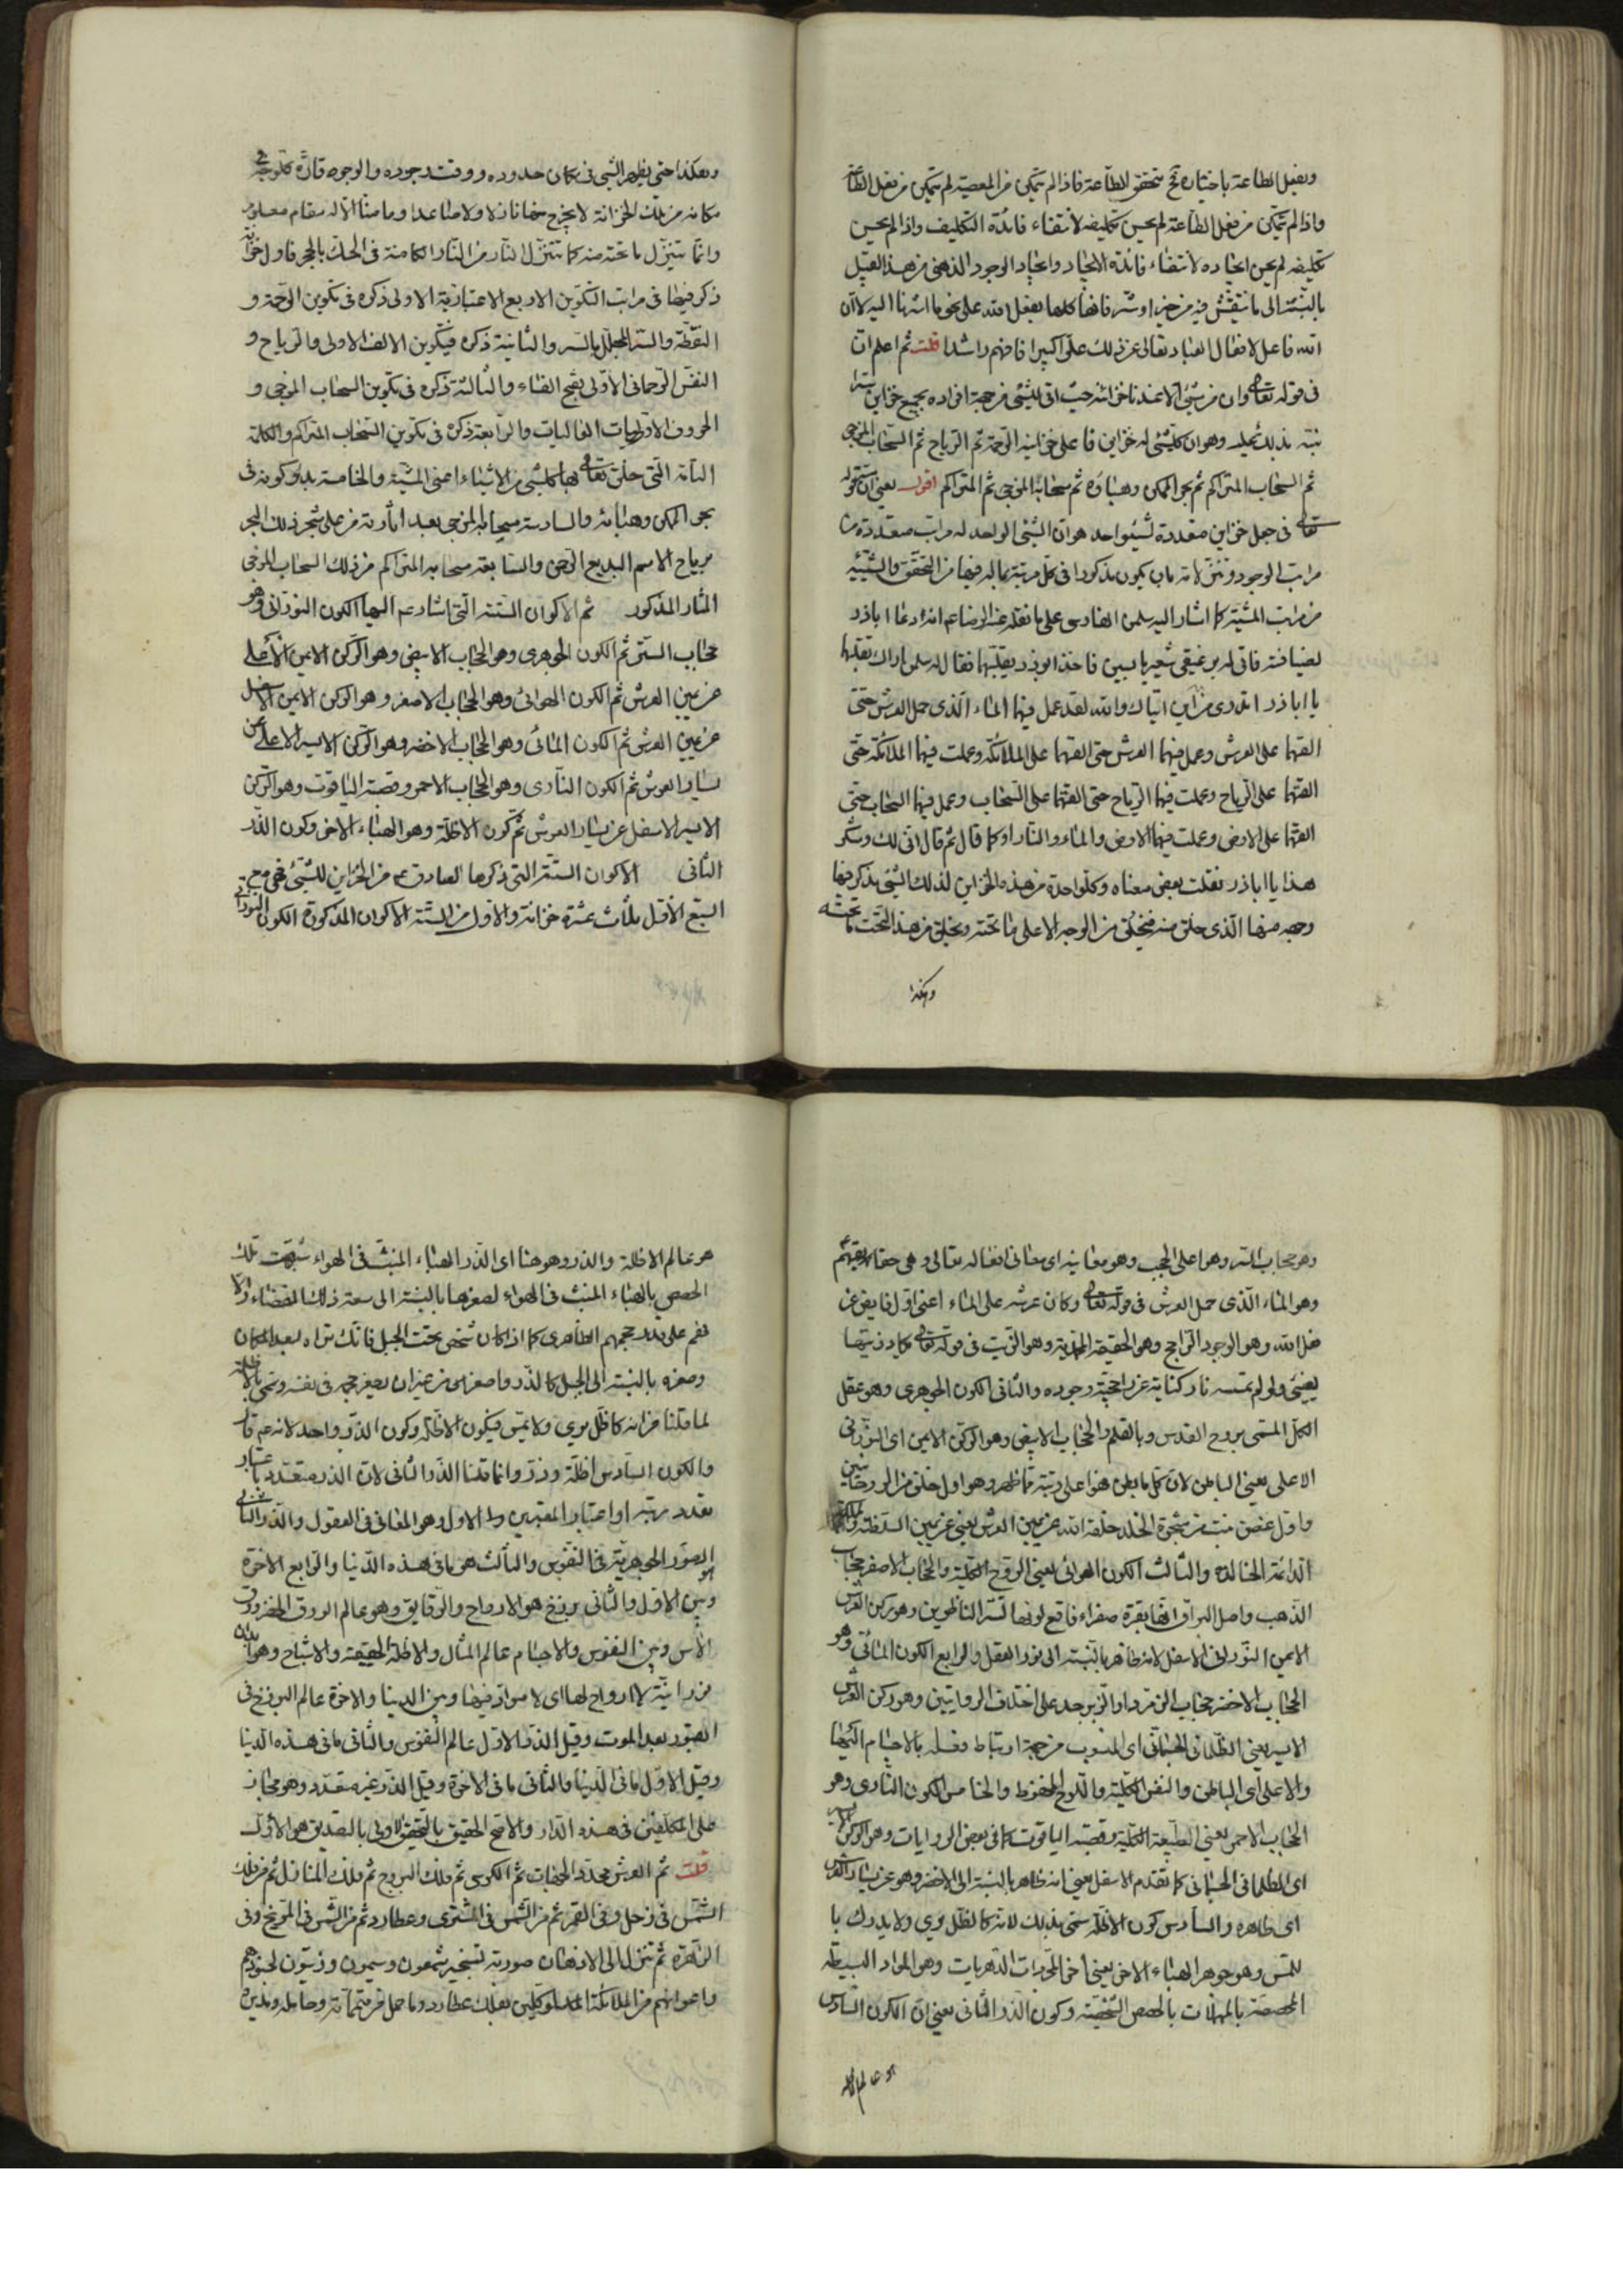 ويفعل الطاعة باختياره تح تتحقق الطاعة فاذا لم يتمكن من المعصية لم يتمكن من فعل الطاعة
واذا لم يتمكن من فعل الطاعة لم يحسن تكليفه لانتفاء فائدة التكليف واذا لم يحسن
تكليفه لم يحسن ايجاده لانتفاء فائدة الايجاد وايجاد الوجود الذهنى من هذا القبيل
بالنسبة الى ما ينتقش فيه من خير او شر فانها كلها بفعل الله على نحو ما اشرنا اليه لا ان
الله فاعل لافعال العباد تعالى عن ذلك علوا كبيرا فافهم راشدا قلت ثم اعلم ان
فى قوله تعالى وان من شئ الا عندنا خزائنه حيث اتى للشئ من جهة افراده بجميع خزاين
نبه بذلك عليه وهو ان كل شئ له خزاين فاعلى خزاينه الرحمة ثم الرياح ثم السحاب المزجى
ثم السحاب المتراكم ثم بحر الممكن وهباؤه ثم سحابه المزجى ثم المتراكم اقول يعنى ان قوله
تعالى فى جعل خزاين متعددة لشئ واحد هو ان الشئ الواحد له مراتب متعددة من
مراتب الوجود وتنزلاته بان يكون مذكورا فى كل مرتبة بما له فيها من التحقق والشيئية
من مراتب المشية كما اشار اليه سلمن الفارسى على ما نقله عنه الرضا عم انه دعا اباذر
لضيافته فاتى له برغيفى شعير يابسين فاخذ ابوذر يقلبهما فقال له سلمن اراك تقلبهما
يا اباذر اتدرى من اين اتياك والله لقد عمل فيهما الماء الذى حمل العرش حتى
القهما على العرش وعمل فيهما العرش حتى القهما على الملائكة وعملت فيهما الملائكة حتى
القتهما على الرياح وعملت فيهما الرياح حتى القتهما على السحاب وعمل فيهما السحاب حتى
القهما على الارض وعملت فيهما الارض والماء والنار او كما قال ثم قال انى لك وشكر
هذا يا اباذر نقلت بعض معناه وكل واحدة من هذه الخزاين لذلك الشئ يذكر فيها
وجه منها الذى خلق منه فيخلق من الوجه الاعلى ما تحته ويخلق من هذا التحت ما تحته
وهكذا
وهكذا حتى يظهر الشئ فى مكان حدوده ووقت وجوده والوجوه قارّة كل وجه فى
مكانه من تلك الخزانة لا يخرج منها نازلا ولا صاعدا وما منا الا له مقام معلوم
وانما يتنزل ما تحته منه كما تتنزل النار من النار الكامنة فى الحك بالحجر فاول خزانة
ذكر فيها فى مراتب التكوين الاربع الاعتبارية الاولى ذكره فى تكوين الرحمة و
النقطة والسر المجلل بالسر والثانية ذكره فى تكوين الالف الاولى والرياح و
النفس الرحمانى الاولى بفتح الفاء والثالثة ذكره فى تكوين السحاب المزجى و
الحروف الاوليات العاليات والرابعة ذكره فى تكوين السحاب المتراكم والكلمة
التامة التى خلق تعالى بها كل شئ من الاشياء اعنى المشية والخامسة بدؤ كونه فى
بحر الممكن وهبائه والسادسة سحابه المزجى بعد اثارته من على شجر ذلك البحر
برياح الاسم البديع الرحمن والسابعة سحابه المتراكم من ذلك السحاب المزجى
المثار المذكور ثم الاكوان الستة التى اشار عم اليها الكون النورانى وهو
حجاب السر ثم الكون الجوهرى وهو الحجاب الابيض وهو الركن الايمن الاعلى
عن يمين العرش ثم الكون الهوائى وهو الحجاب الاصفر وهو الركن الايمن الاسفل
عن يمين العرش ثم الكون المائى وهو الحجاب الاخضر وهو الركن الايسر الاعلى عن
يسار العرش ثم الكون النارى وهو الحجاب الاحمر وقصبة الياقوت وهو الركن
الايسر الاسفل عن يسار العرش ثم كون الاظلة وهو الهباء الاخر وكون الذر
الثانى الاكوان الستة التى ذكرها الصادق عم من الخزاين للشئ فهى مع
السبع الاول ثلاث عشرة خزانة والاول من الستة الاكوان المذكورة الكون النورانى
وهو حجاب السر وهو اعلى الحجب وهو معانيه اى معانى افعاله تعالى وهى حقايقهم
وهو الماء الذى حمل العرش فى قوله تعالى وكان عرشه على الماء اعنى اول فايض عن
فعل الله وهو الوجود الراجح وهو الحقيقة المحمدية وهو الزيت فى قوله تعالى يكاد زيتها
يضئ ولو لم تمسسه نار كناية عن راجحية وجوده والثانى الكون الجوهرى وهو عقل
الكل المسمى بروح القدس وبالقلم والحجاب الابيض وهو الركن الايمن اى النورانى
الاعلى يعنى الباطن لان كل ما بطن فهو اعلى رتبة مما ظهر وهو اول خلق من الروحانيين
واول غصن نبت من شجرة الخلد خلقه الله عن يمين العرش يعنى عن يمين السلطنة والملكة
الدائمة الخالدة والثالث الكون الهوائى يعنى الروح الكلية والحجاب الاصفر حجاب
الذهب واصل البراق انها بقرة صفراء فاقع لونها تسر الناظرين وهو ركن العرش
الايمن النورانى الاسفل لانه ظاهر بالنسبة الى نور العقل والرابع الكون المائى وهو
الحجاب الاخضر حجاب الزمرد او الزبرجد على اختلاف الروايتين وهو ركن العرش
الايسر يعنى الظلمانى الجسمانى اى المنسوب من جهة ارتباط وفعله بالاجسام اليها
والاعلى اى الباطن والنفس الكلية واللوح المحفوظ والخامس الكون النارى وهو
الحجاب الاحمر يعنى الطبيعة الكلية وقصبة الياقوت كما فى بعض الروايات وهو الركن الايسر
اى الظلمانى الجسمانى كما تقدم الاسفل يعنى انه ظاهر بالنسبة الى الاخضر وهو عن يسار العرش
اى ظاهره والسادس كون الاظلة سمى بذلك لانه كالظل يرى ولا يدرك با
للمس وهو جوهر الهباء الاخر يعنى اخر المجردات الدهريات وهو المواد البسيطة
المحصصة بالمهلات بالحصص الشخصية وكون الذر الثانى يعنى ان الكون السادس
هو عالم الاظلة
هو عالم الاظلة والذر وهو هنا اى الذر الهباء المنبث فى الهواء شبهت تلك
الحصص بالهباء المنبث فى الهواء لصغرها بالنسبة الى سعة ذلك الفضاء والا
فهم على قدر حجمهم الظاهرى كما اذا كان شخص تحت الجبل فانك تراه لبعد المكان
وصغره بالنسبة الى الجبل كالذر واصغر من غير ان يصغر حجمه فى نفسه وسمى بالاظلة
لما قلنا من انه كالظل يرى ولا يمس فيكون الاظلة وكون الذر واحد لانه عم قال
والكون السادس اظلة وذر وانما قلنا الذر الثانى لان الذر متعدد باعتبار
تعدد رتبه او اعتبار المعتبرين والاول وهو المعانى فى العقول والذر الثانى
الصور الجوهرية فى النفوس والثالث هو ما فى هذه الدنيا والرابع الاخرة
وبين الاول والثانى برزخ هو الارواح والرقايق وهو عالم الورق الاخضر وورق
الاس وبين النفوس والاجسام عالم المثال والاظلة الحقيقية والاشباح وهو ابدان
نورانية لا ارواح لها اى لا مواد فيها وبين الدنيا والاخرة عالم البرزخ فى
القبور بعد الموت وقيل الذر الاول عالم النفوس والثانى ما فى هذه الدنيا
وقيل الاول ما فى الدنيا والثانى ما فى الاخرة وقيل الذر غير متعدد وهو مجاز
على المكلفين فى هذه الدار والاصح الحقيق بالتحقيق الاولى بالتصديق هو الاول
قلت ثم العرش محدد الجهات ثم الكرسى ثم فلك البروج ثم فلك المنازل ثم من فلك
الشمس فى زحل وفى القمر ثم من الشمس فى المشترى وعطارد ثم من الشمس فى المريخ وفى
الزهرة ثم تنزل الى الاذهان صورته بتسخير شمعون وسيمون وزيتون لجنودهم
واعوانهم من الملائكة الموكلين بفلك عطارد وما حمل من متمماته وحامله وتدويره